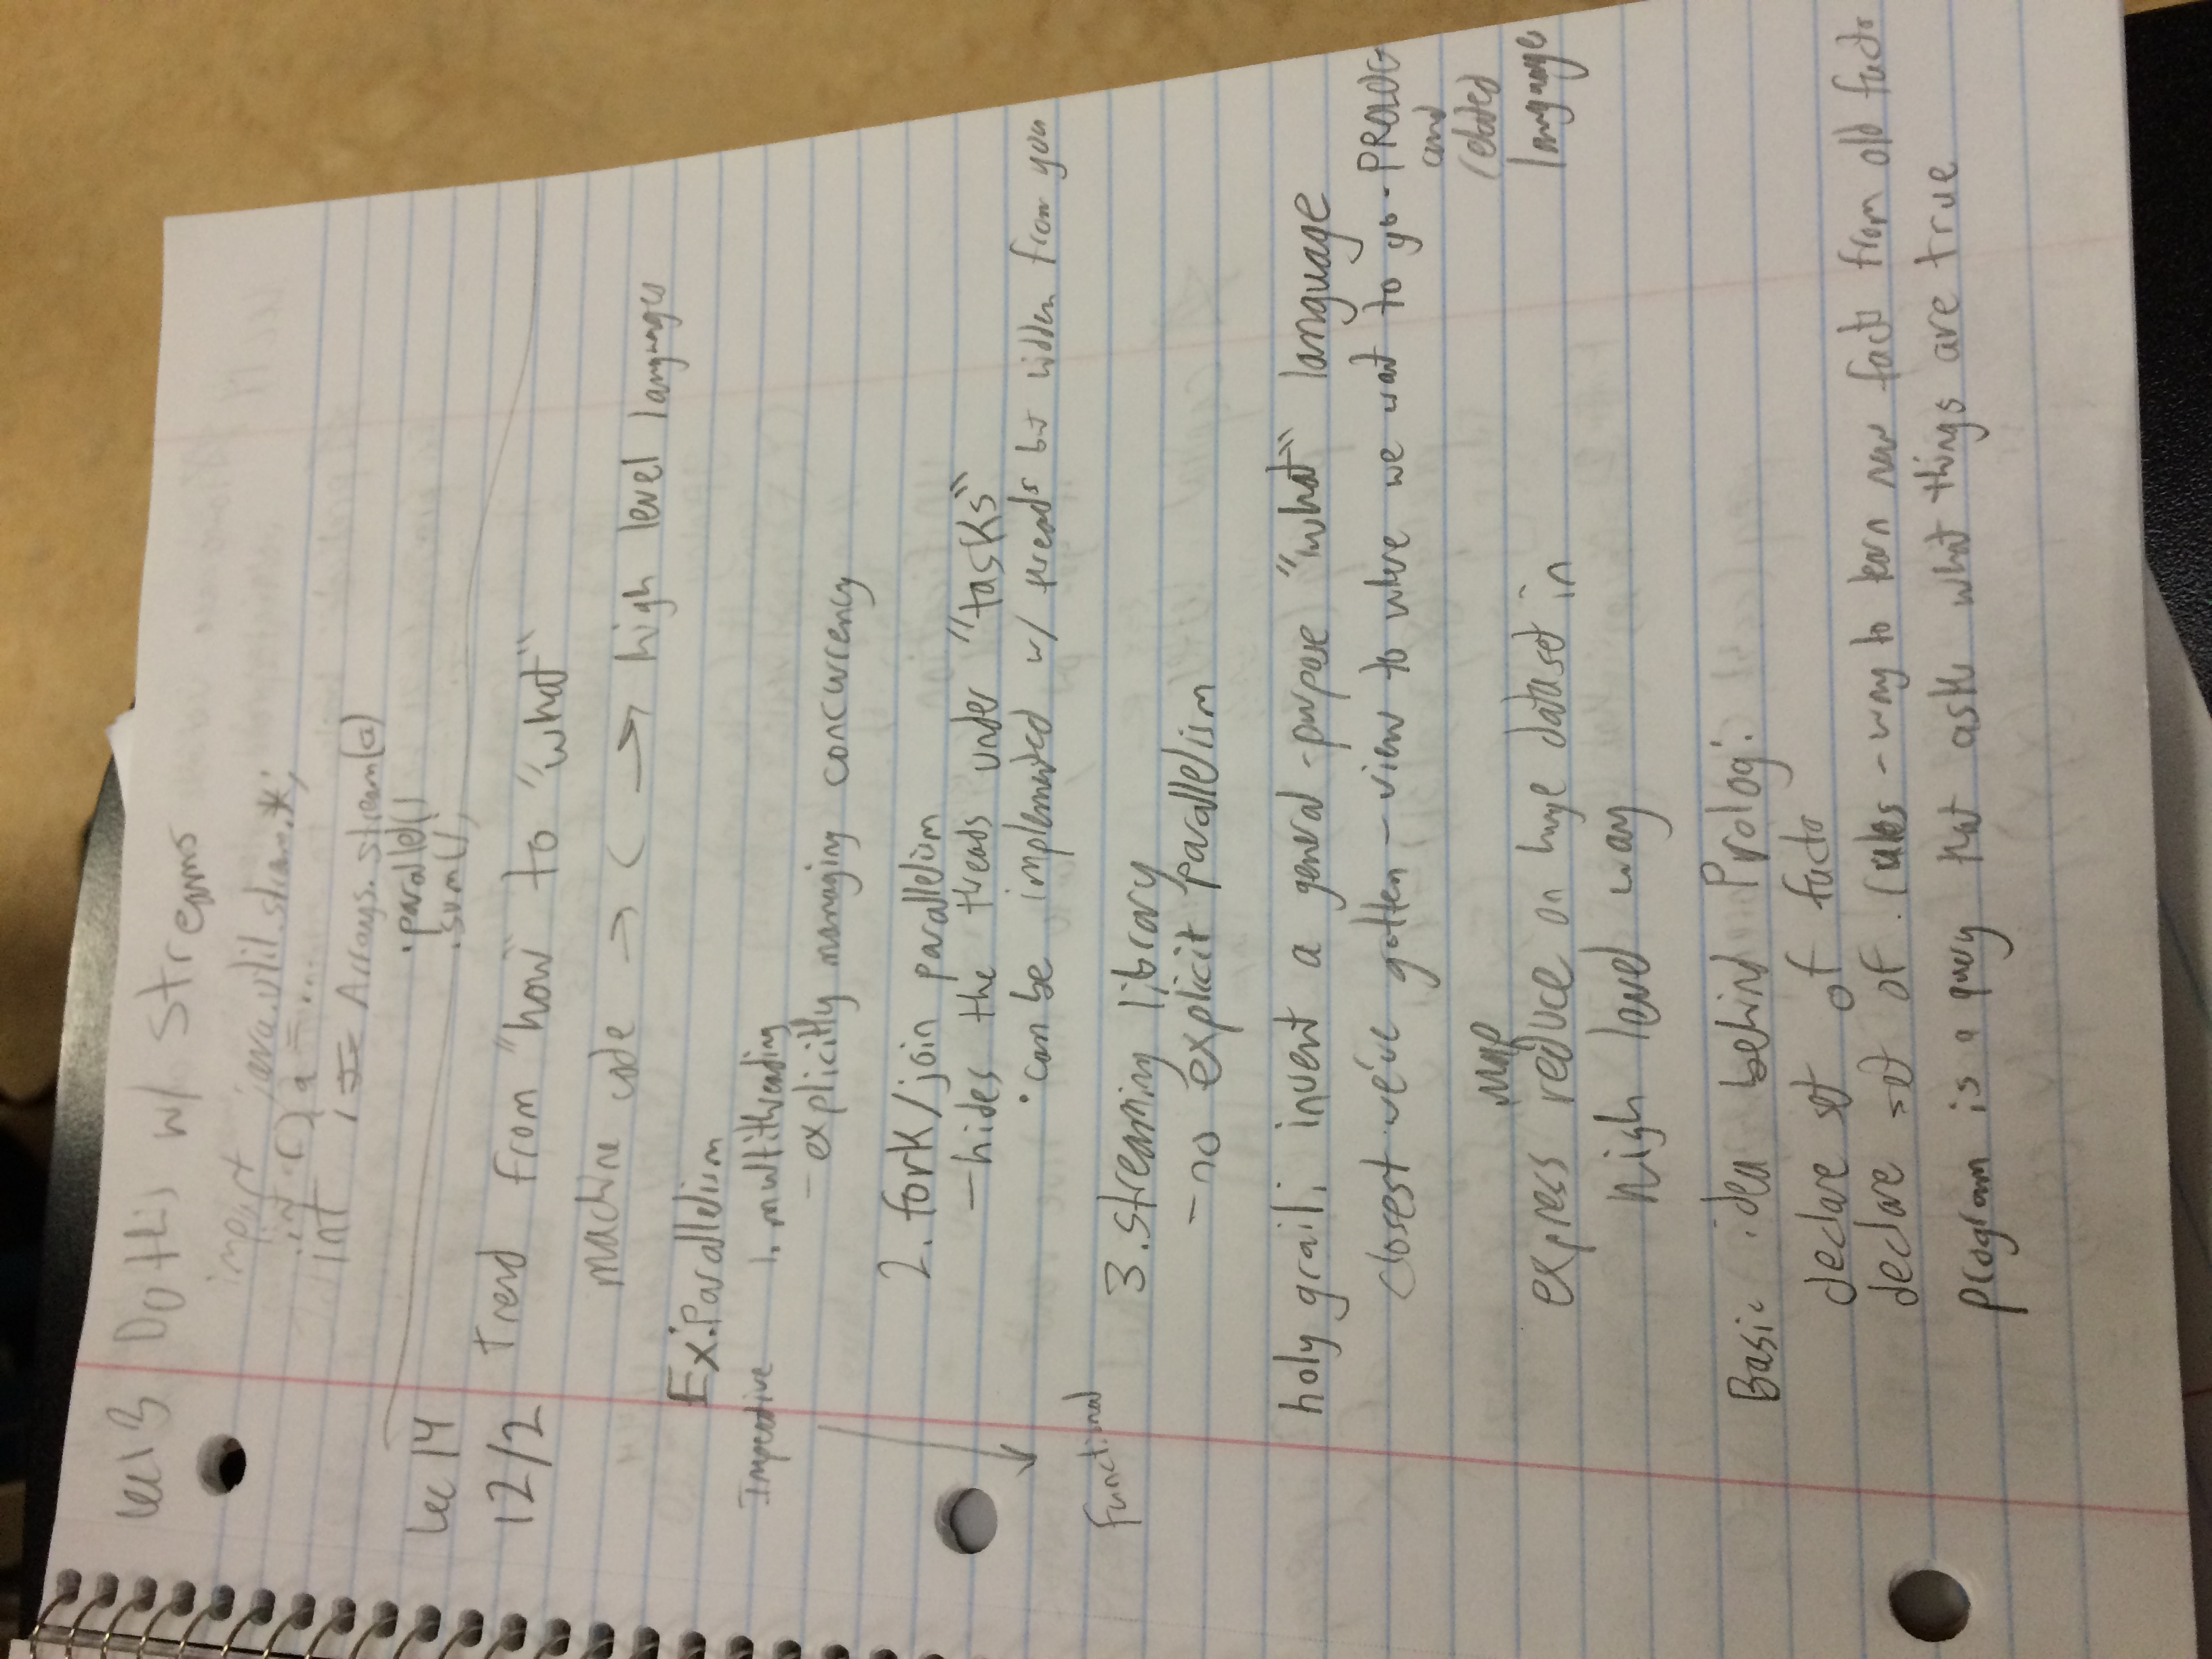 Lec 13 Do this w/ Streams
import java.util.stream.*;
int [] a = ....
int i = Arrays.stream(a)
.parallel()
.sum();
Lec 14
12/2 Trend from "how" to "what"
machine code → C → high level languages
Ex: Parallelism
Imperative 1. multithreading
- explicitly managing concurrency
2. fork/join parallelism
- hides the threads under "tasks"
• can be implemented w/ threads but hidden from you
Functional
3. streaming library
- no explicit parallelism
holy grail: invent a general-purpose "what" language
closest we've gotten - view to where we want to go - PROLOG
and
related
language
map
express reduce on huge dataset in
high level way
Basic idea behind Prolog:
declare set of facts
declare set of rules - way to learn new facts from old facts
program is a query that asks what things are true